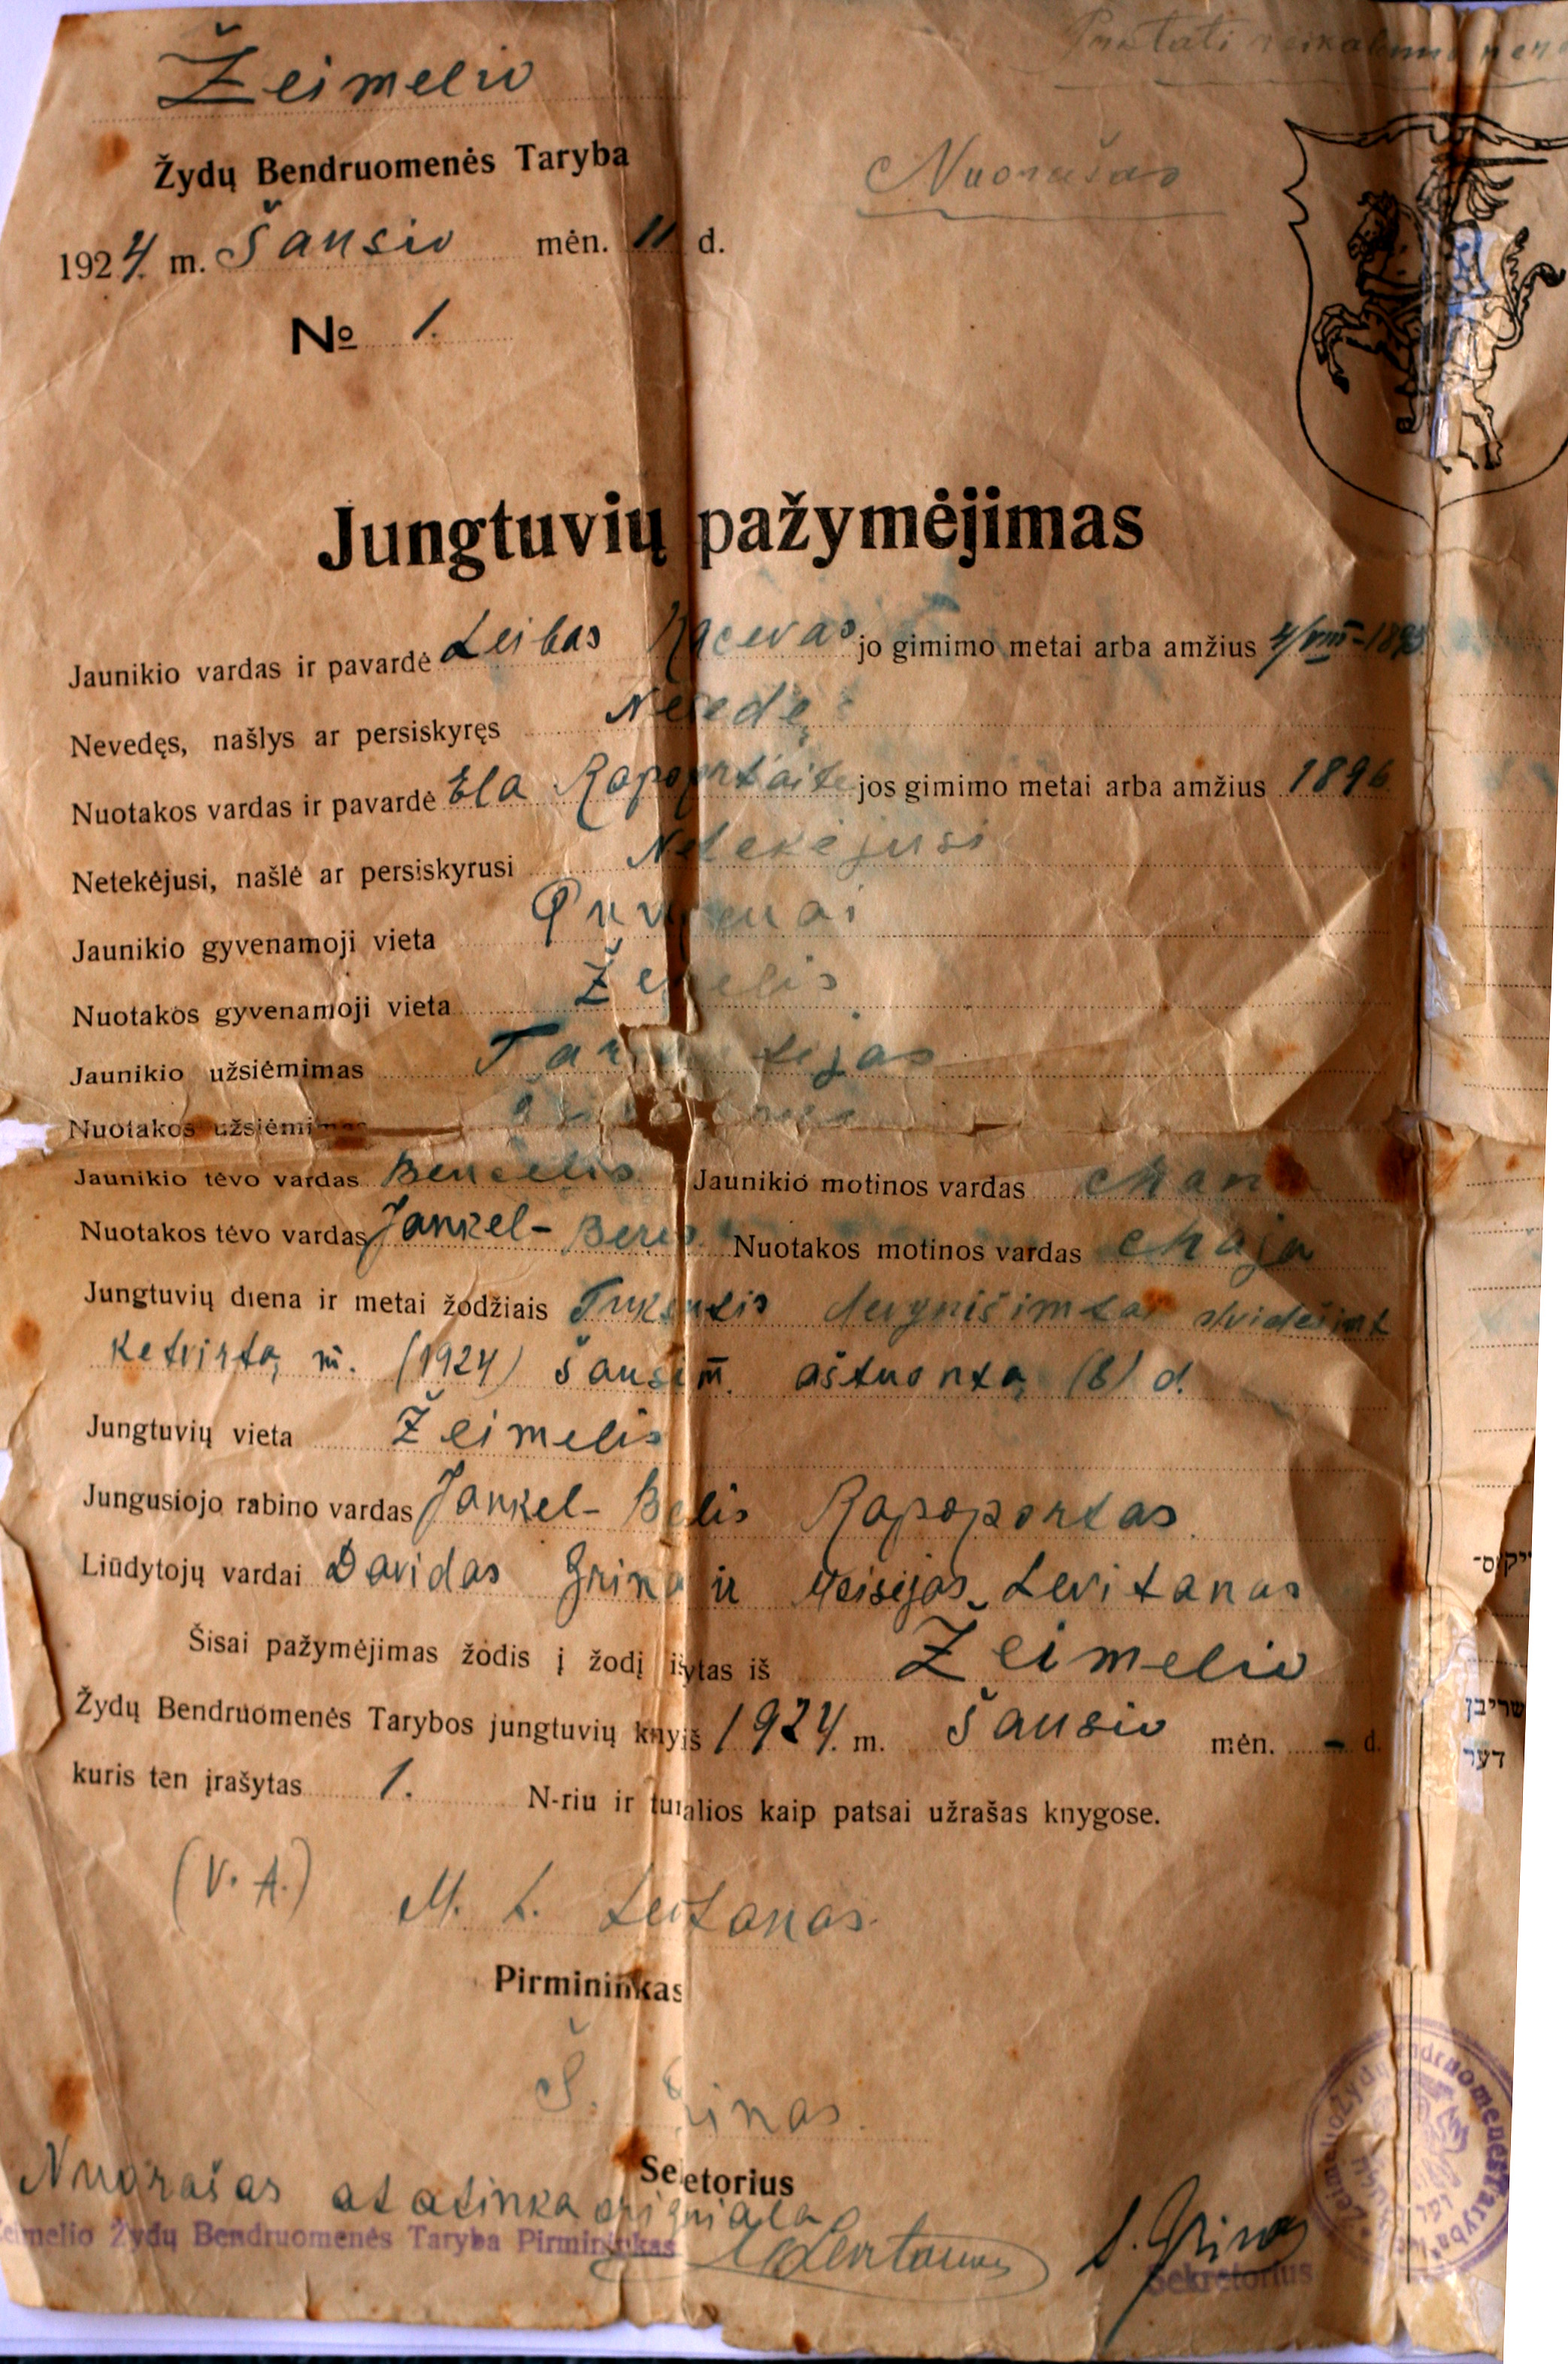 Žeimelio
Nuorašas
Žydų Bendruomenės Taryba
1924 m. Sausio mėn. 11 d.
№ 1.
Jungtuvių pažymėjimas
Jaunikio vardas ir pavardė Leibas jo gimimo metai arba amžius
Nevedęs, našlys ar persiskyręs Nevedę
Nuotakos vardas ir pavardė Ela Rapoportaite jos gimimo metai arba amžius 1896
Netekėjusi, našlė ar persiskyrusi Netekėjusi
Jaunikio gyvenamoji vieta
Nuotakos gyvenamoji vieta
Jaunikio užsiėmimas
Nuotakos užsiėmimas
Jaunikio tėvo vardas Bencelis Jaunikio motinos vardas Chana
Nuotakos tėvo vardas Jankel- Nuotakos motinos vardas Chaja
Jungtuvių diena ir metai žodžiais Tukstantis devynišimtai dvidešimt
ketvirtą m. (1924) Sausio m. aštuontą (8) d.
Jungtuvių vieta Žeimelis
Jungusiojo rabino vardas Jankel- Rapoportas
Liūdytojų vardai Davidas Grinas ir Levitanas
Šisai pažymėjimas žodis į žodį iš Žeimelio
Žydų Bendruomenės Tarybos jungtuvių knygos 1924 m. Sausio mėn. - d.
kuris ten įrašytas 1. N-riu ir kaip patsai užrašas knygose.
(V. A.) M. L. Levitanas
Pirmininkas
Š. Grinas
Sekretorius
Nuorašas atatinka originala
Žeimelio Žydų Bendruomenės Taryba Pirmininkas
S. Grinas
Sekretorius
שריבן
דער